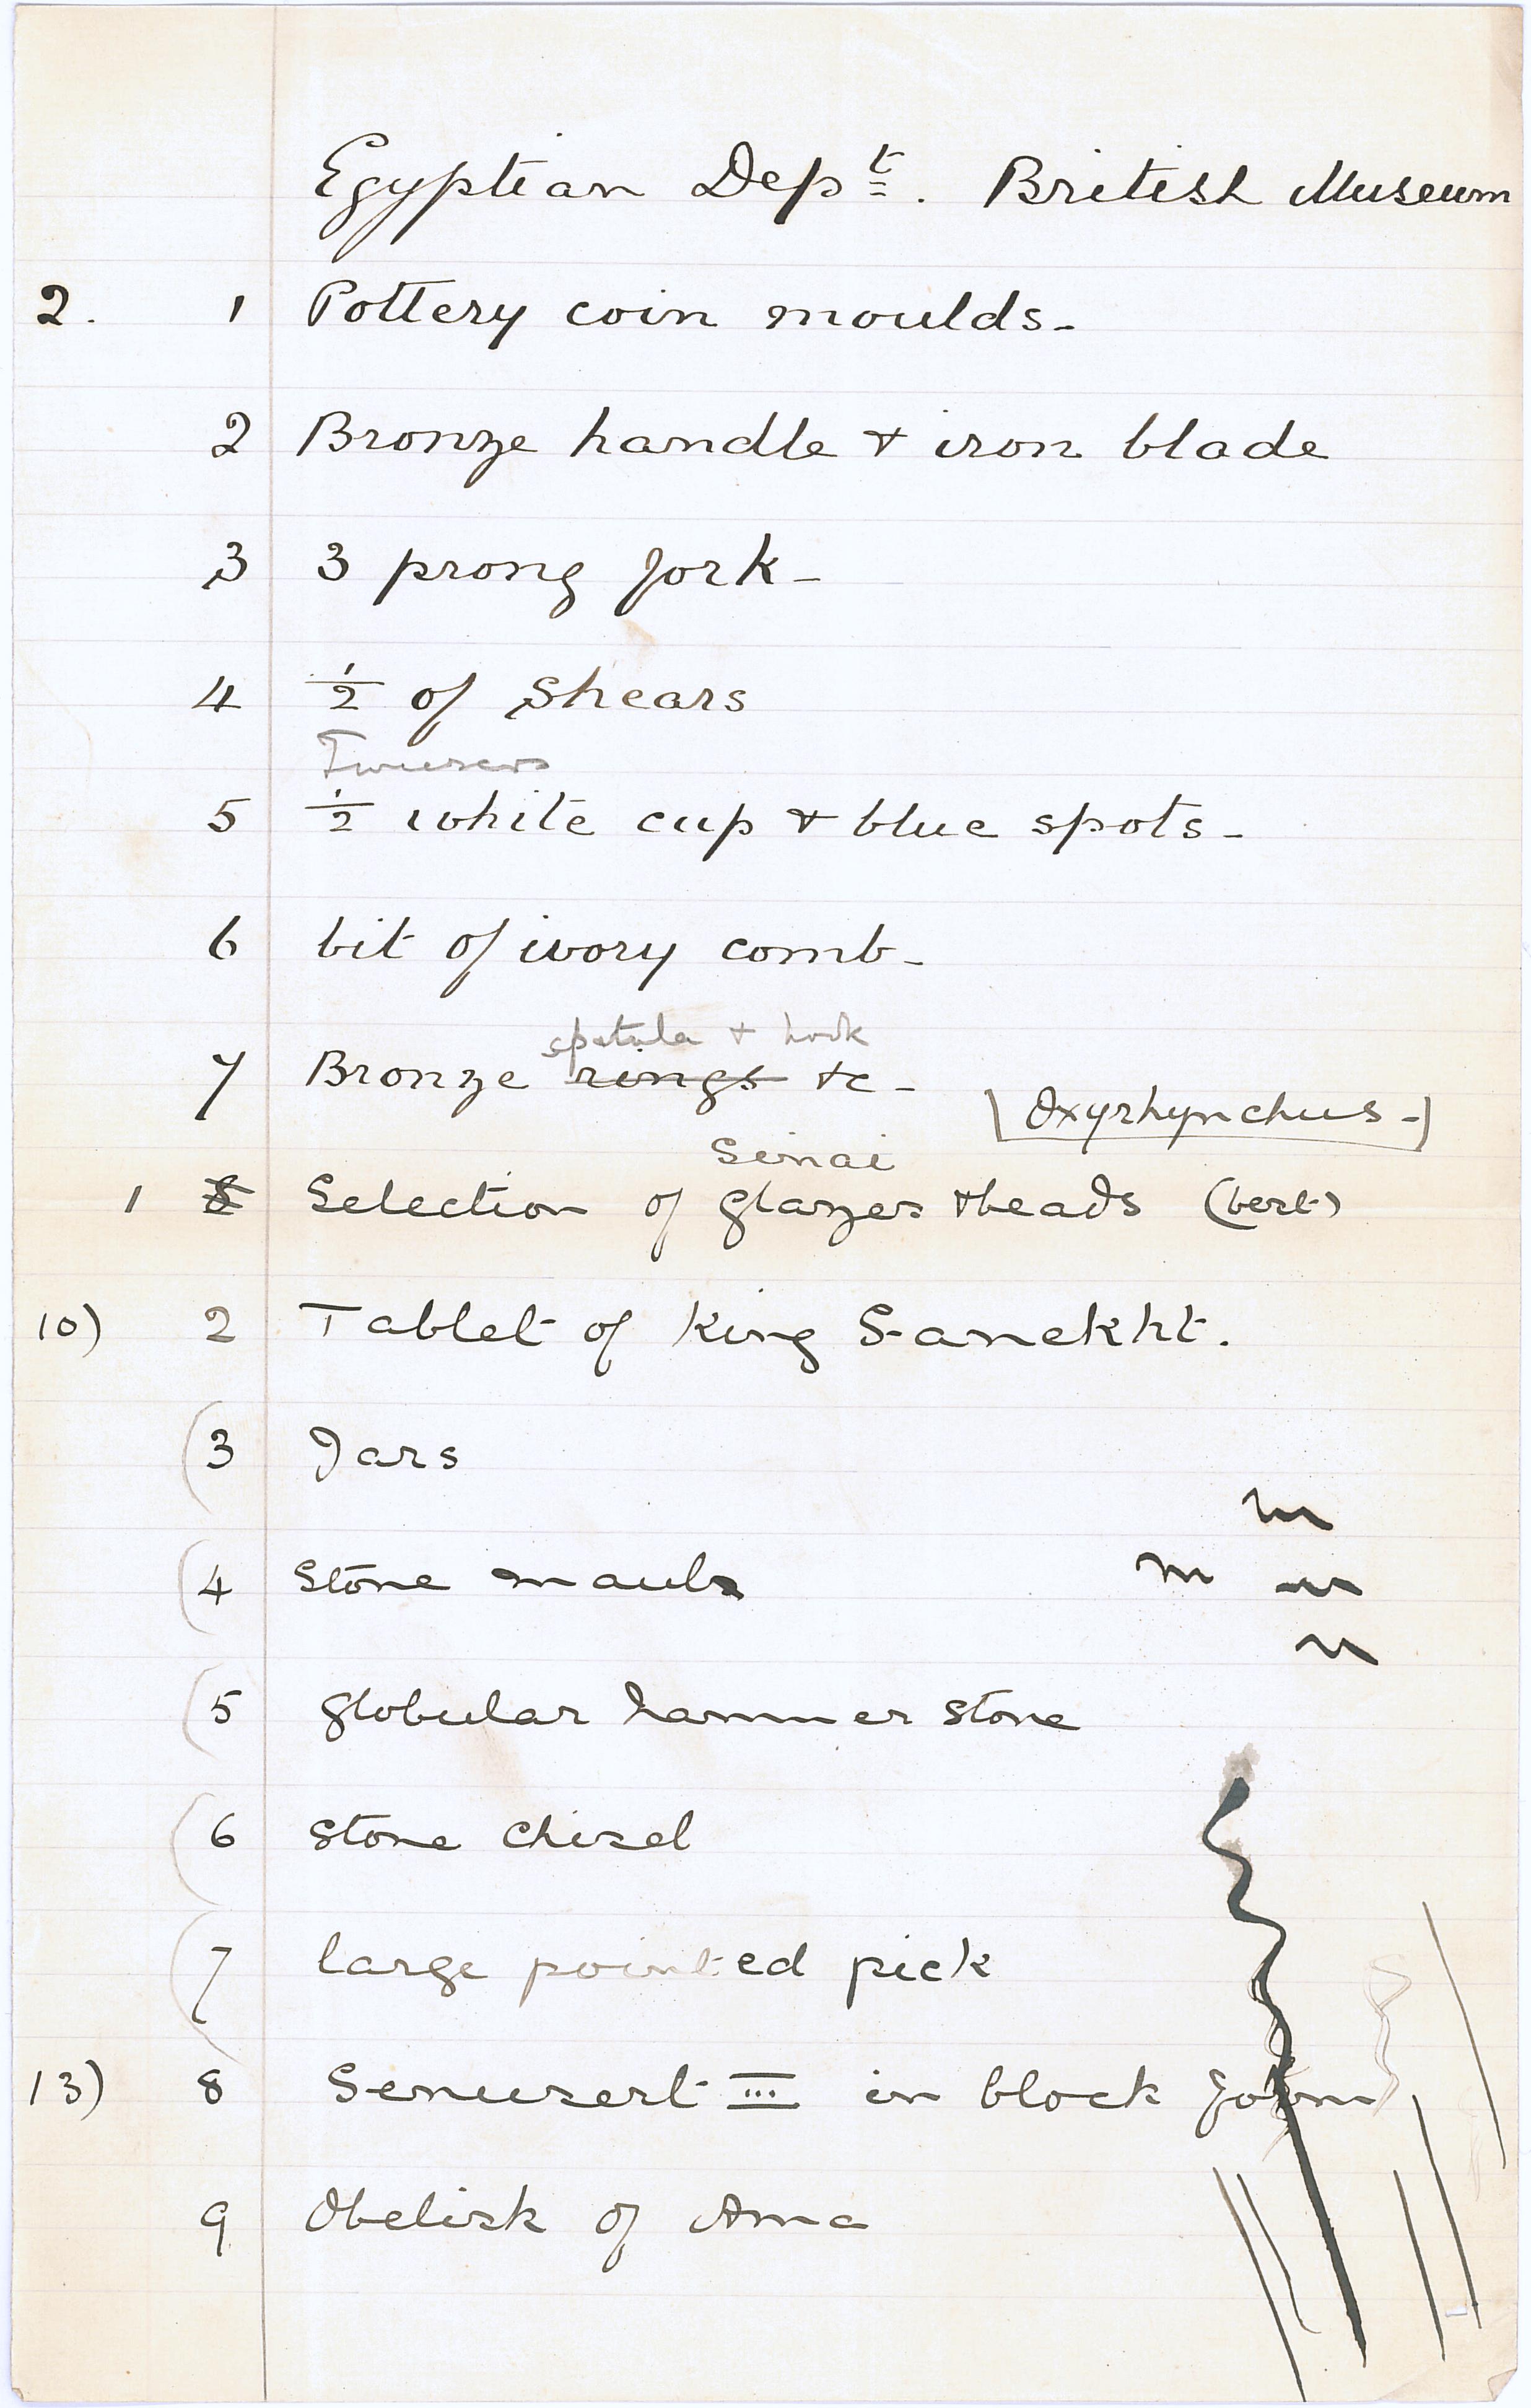 Egyptian Dept. British Museum
2. 1 Pottery coin moulds -
2 Bronze handle & iron blade
3 3 prong fork -
4 ½ of Shears
Tweesers
5 ½ white cup & blue spots -
6 bit of ivory comb -
spatula + hook
7 Bronze rings &c -
[Oxyrhynchus -]
Sinai
1 8 Selection of glazes & beads (best)
10) 2 Tablet of King S-anekht.
(3 Jars
(4 Stone mauls
(5 globular hammer stone
(6 stone chisel
(7 large pointed pick
13) 8 Senusert III in block form
9 Obelisk of Ama